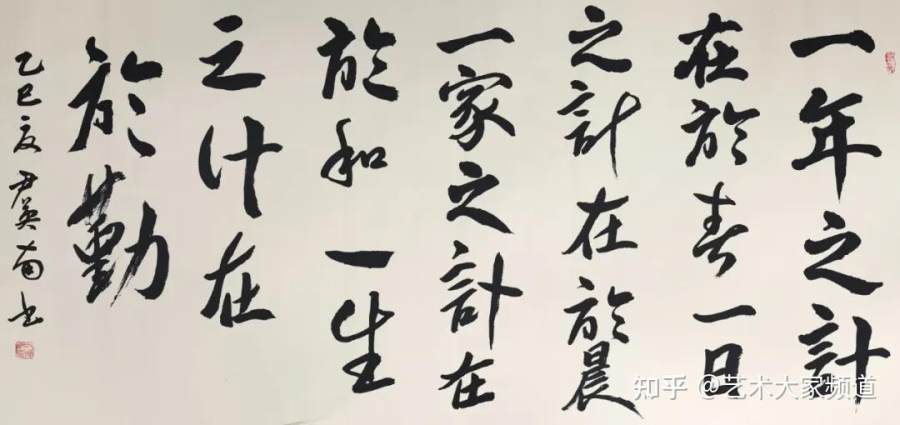 一年之計
在於春一日
之計在於晨
一家之計在
於和一生
之计在
於勤
乙巳夏尹英南书
知乎 @艺术大家频道